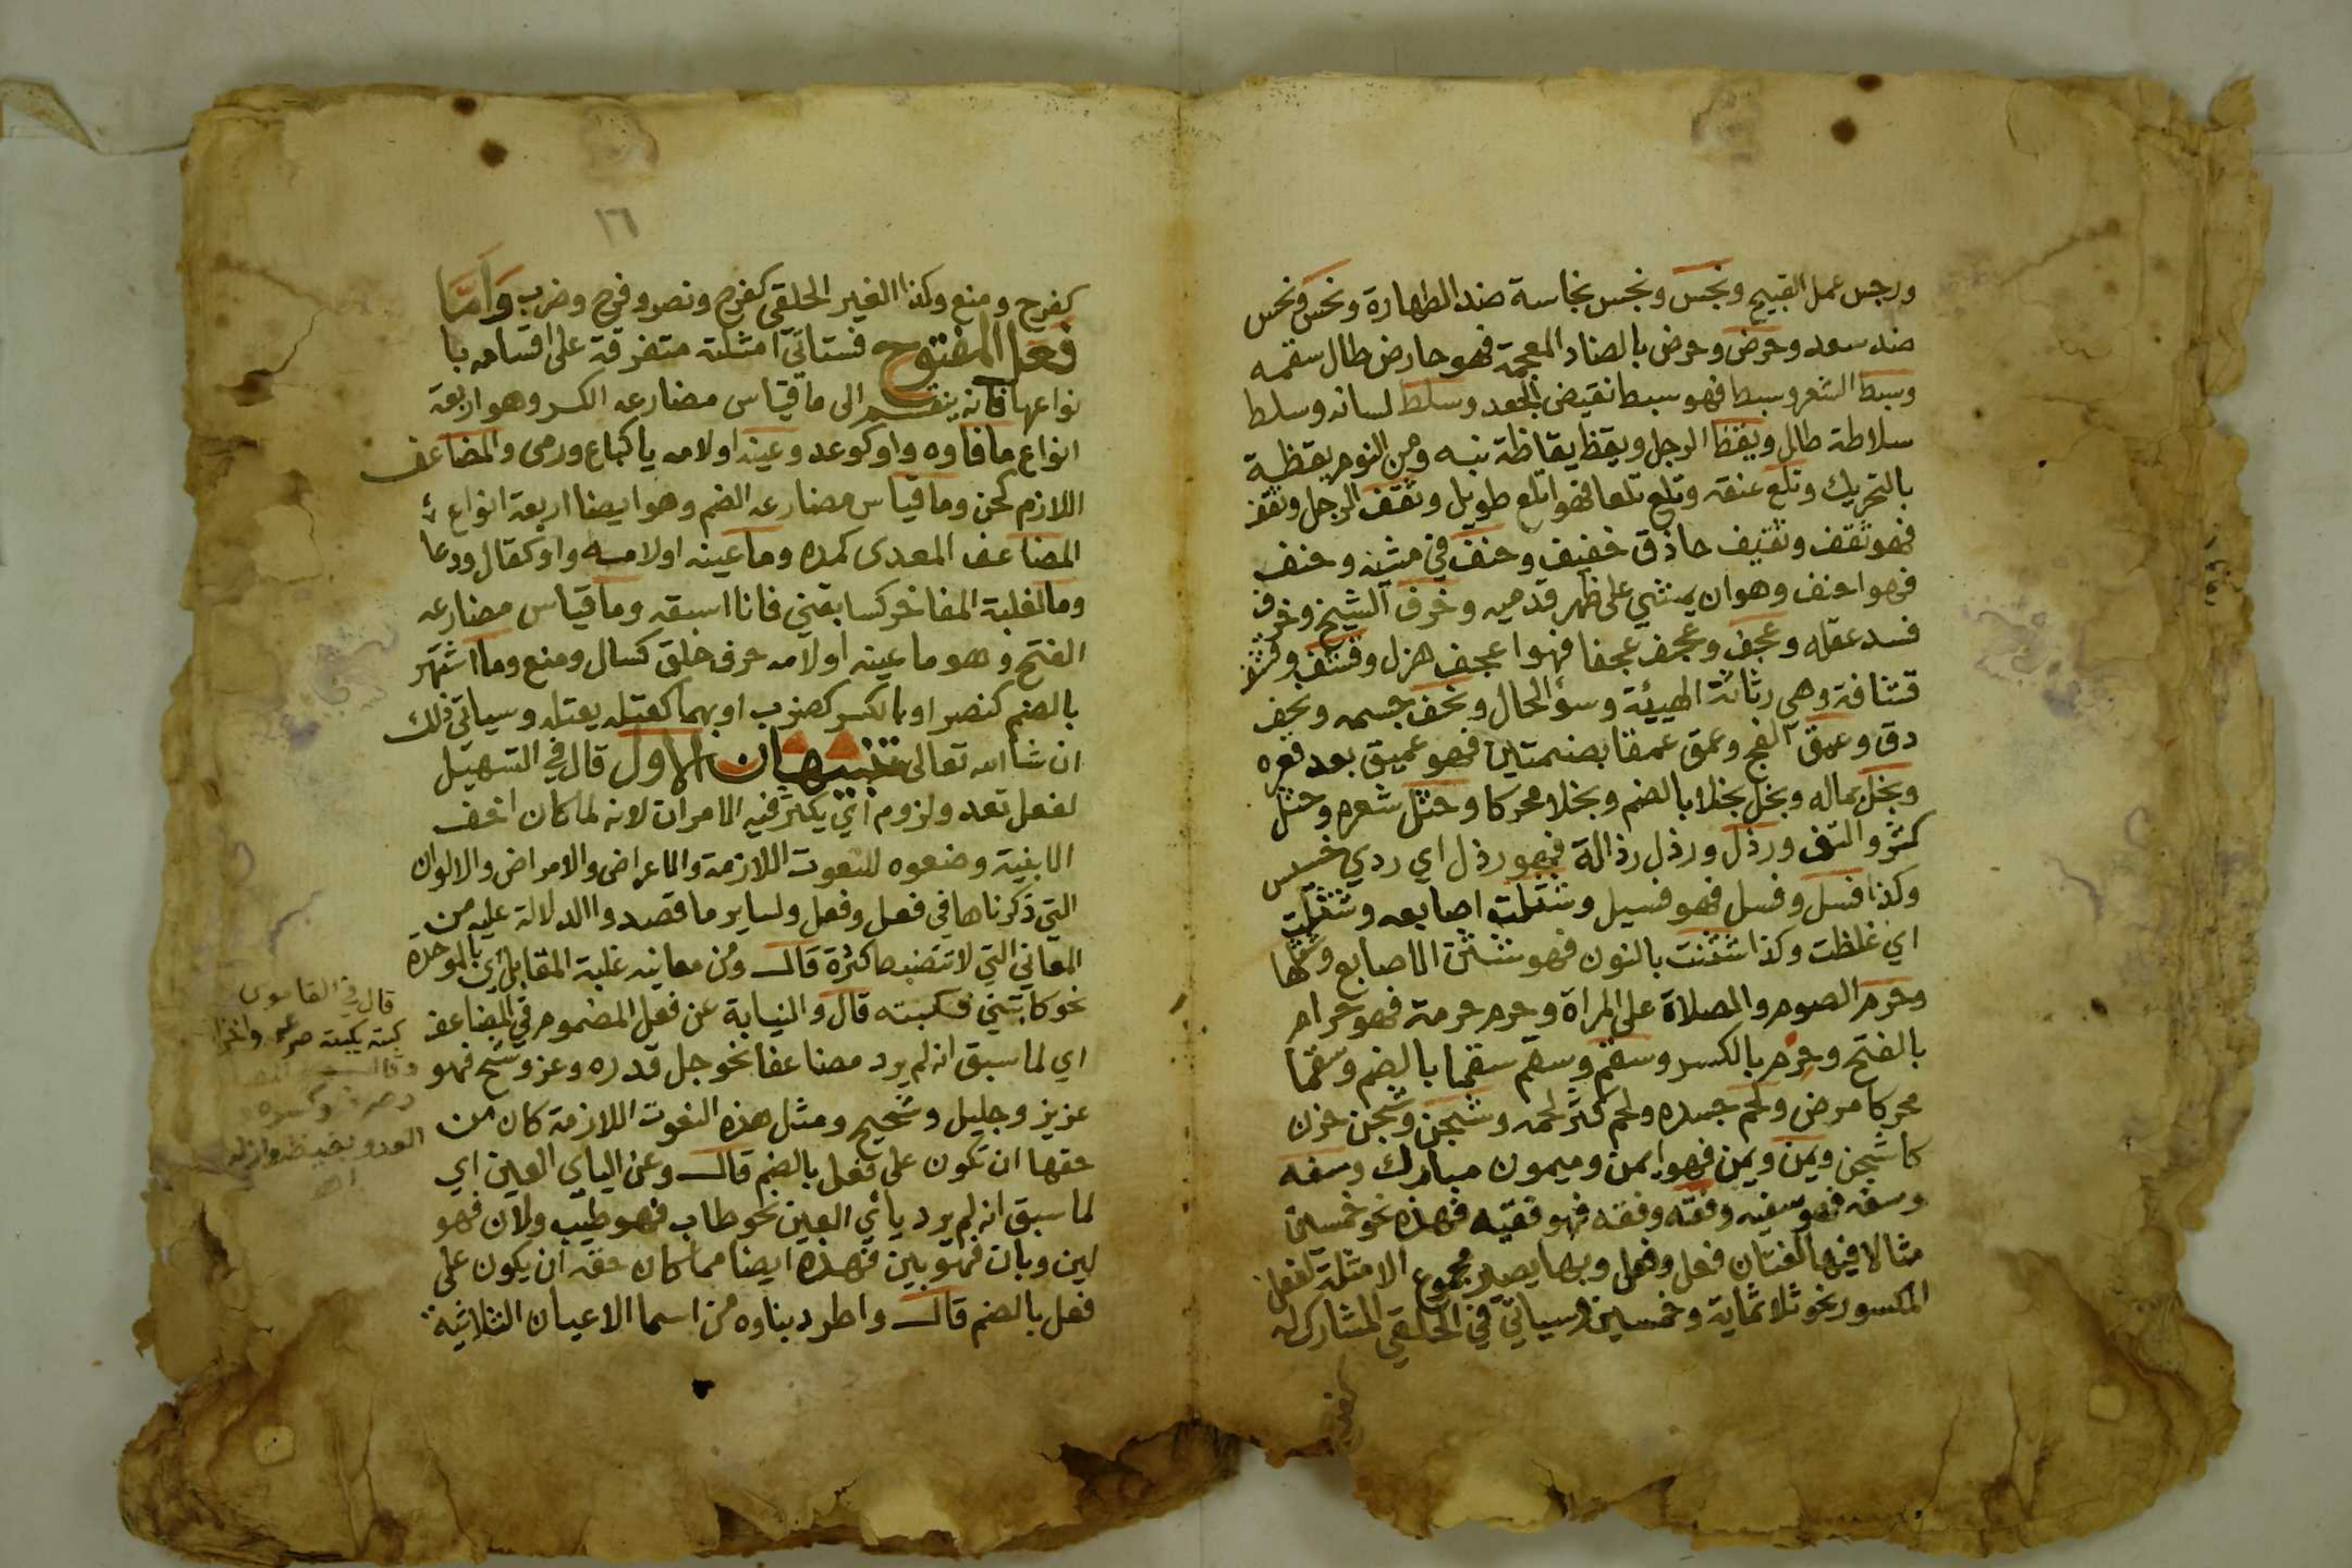 ورجس عمل القبيح ونجس ونجس نجاسة ضد الطهارة ونحس ونحس
ضد سعد وحرض وحرض بالضاد المعجمة فهو حارض طال سقمه
وسبط الشعر وسبط فهو سبط نقيض الجعد وسلط لسانه وسلط
سلاطة طال ويقظ الرجل ويقظ يقاظة نبه ومن النوم يقظة
بالتحريك وتلع عنقه وتلع تلعا فهو اتلع طويل وثقف الرجل وثقف
فهو ثقف وثقيف حاذق خفيف وحنف في مشيه وحنف
فهو احنف وهو ان يمشي على ظهر قدميه وخرف الشيخ وخرف
فسد عقله وعجف وعجف عجفا فهو اعجف هزل وقشف وقشف
قشافة وهي رثاثة الهيئة وسوء الحال ونحف جسمه ونحف
دق وعمق الفج وعمق عمقا بضمتين فهو عميق بعد قعره
وبخل بماله وبخل بخلا بالضم وبخلا محركا وجثل شعره وجثل
كثر والتف ورذل ورذل رذالة فهو رذل اي ردي خسيس
وكذا فسل وفسل فهو فسيل وشثلت اصابعه وشثلت
اي غلظت وكذا شثنت بالنون فهو شثن الاصابع وشثلها
وحرم الصوم والصلاة على المراة وحرم حرمة فهو حرام
بالفتح وحرم بالكسر وسقم وسقم سقما بالضم وسقما
محركا مرض ولحم جسده ولحم كثر لحمه وشجن وشجن حزن
كاشجن ويمن ويمن فهو ايمن وميمون مبارك وسفه
وسفه فهو سفيه وفقه وفقه فهو فقيه فهذه نحو خمسين
مثالا فيها لغتان فعل وفعل وبها يصير مجموع الامثلة لفعل
المكسور نحو ثلاثماية وخمسين وسياتي في الحلقي المشارك له
كفرح
١٦
كفرح ومنع وكذا الغير الحلقي كفرح ونصر وفرح وضرب وَاَمَّا
فَعَل المفتوح فستاتي امثلته متفرقة على اقسامه با
نواعها فانه ينقسم الى ما قياس مضارعه الكسر وهو اربعة
انواع ما فاوه واو كوعد وعينه اولامه يا كباع ورمى والمضاعف
اللازم كحن وما قياس مضارعه الضم وهو ايضا اربعة انواع
المضاعف المعدى كمده وما عينه اولامه واو كقال ودعا
وما لغلبة المفاخر كسابقني فانا اسبقه وما قياس مضارعه
الفتح وهو ما عينه اولامه حرف حلق كسال ومنع وما اشتهر
بالضم كنصر او بالكسر كضرب او بهما كعتله يعتله وسياتي ذلك
ان شا الله تعالى تنبيهان الاول قال في التسهيل
لفعل تعد ولزوم اي يكثر فيه الامران لانه لما كان اخف
الابنية وضعوه للنعوت اللازمة والاعراض والامراض والالوان
التي ذكرناها في فعل وفعل ولساير ما قصدوا الدلالة عليه من
المعاني التي لا تنضبط كثرة قال ومن معانيه غلبة المقابل اي بالموحدة
نحو كابتني فكبته قال والنيابة عن فعل المضموم في المضاعف
اي لما سبق انه لم يرد مضاعفا نحو جل قدره وعز وشح فهو
عزيز وجليل وشحيح ومثل هذه النعوت اللازمة كان من
حقها ان تكون على فعل بالضم قال وعن الياي العين اي
لما سبق انه لم يرد يائي العين نحو طاب فهو طيب ولان فهو
لين وبان فهو بين فهذه ايضا مما كان حقه ان يكون على
فعل بالضم قال واطرد بناوه من اسما الاعيان الثلاثية
قال في القاموس
كبته يكبته صرعه واخزا
وصرفه وكسره و
العدو بغيظه واذله
اهـ